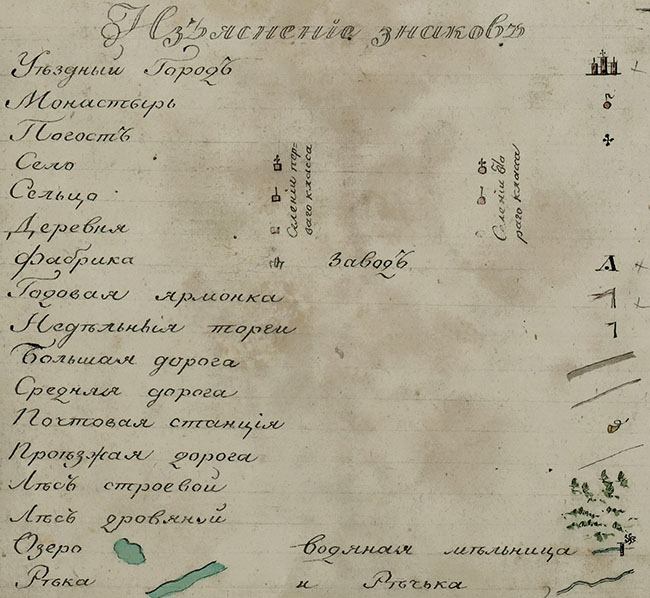 Изъясненіе знаковъ
Уѣздный Городъ
Монастырь
Погостъ
Село
Сельцо
Деревня
Селеніи пер-
ваго класса
Селеніи вто
раго класса
Фабрика Заводъ А
Годовая ярмонка
Недѣльныя торги
Большая дорога
Средняя дорога
Почтовая станція
Проѣзжая дорога
Лѣсъ строевой
Лѣсъ дровяной
Озеро водяная мѣльница
Рѣка и Рѣчька